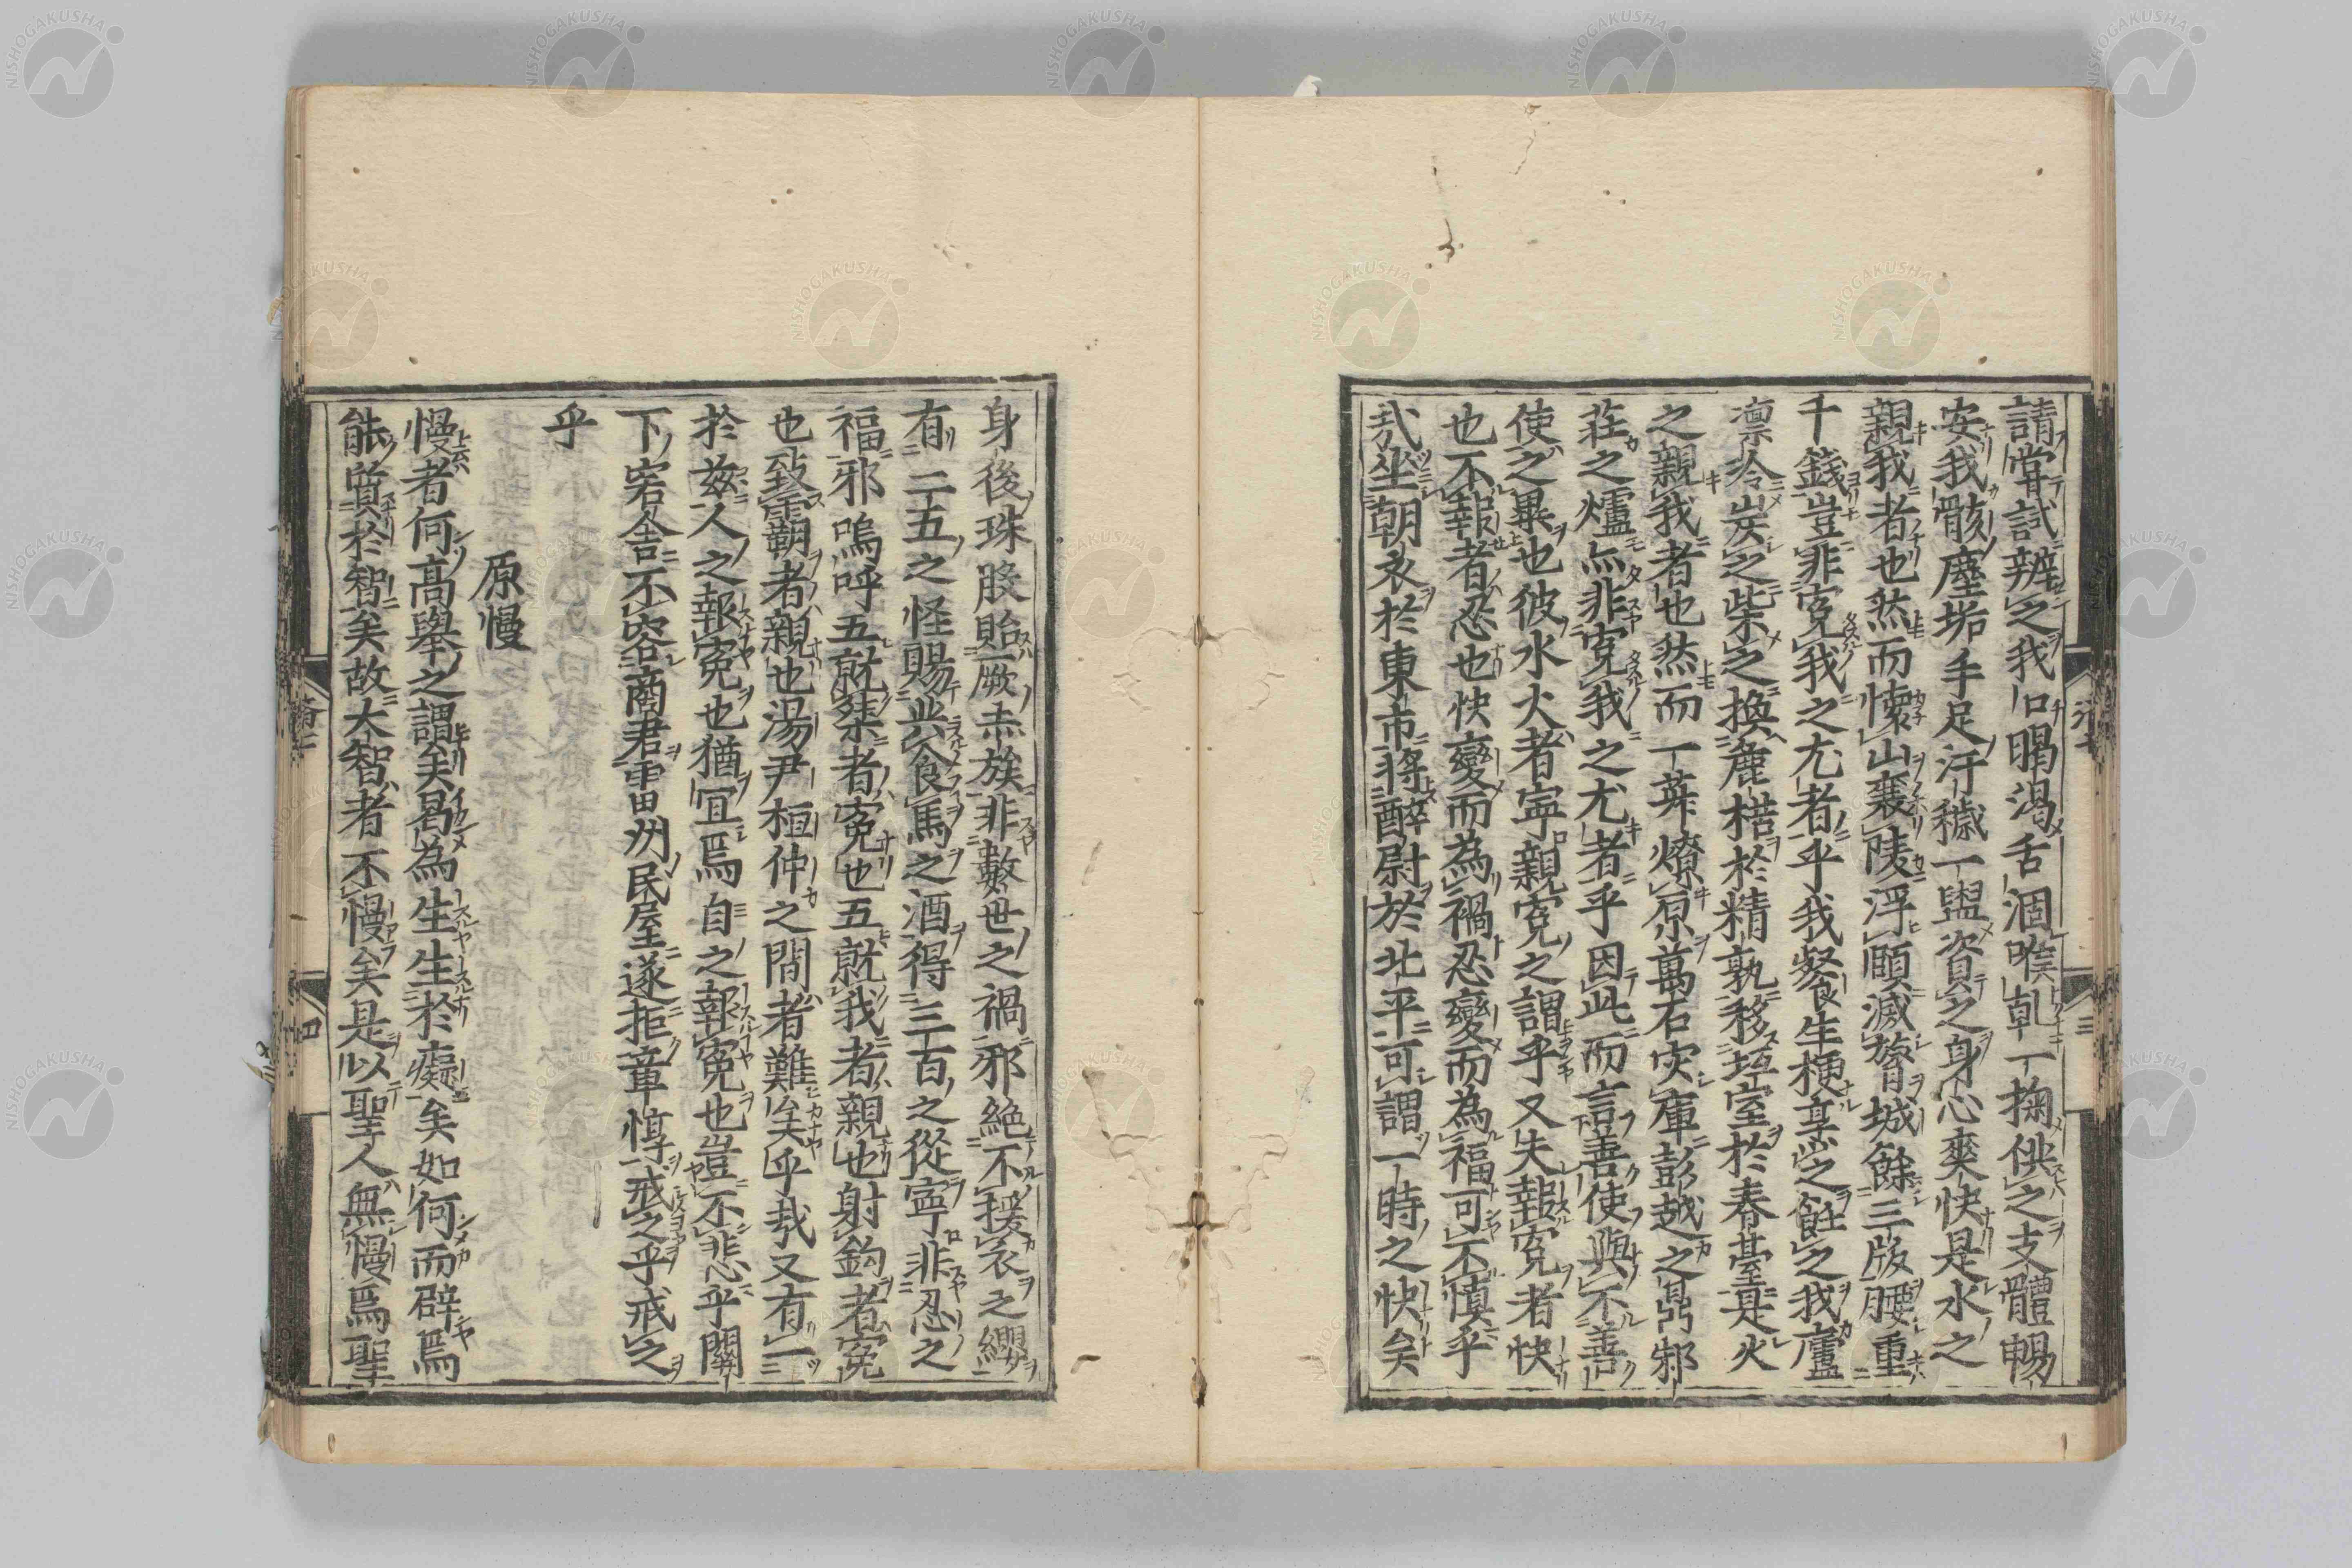 請嘗試辨之我口暍渴舌涸喉乾一掬供之支體暢
安我骸塵垢手足汙穢一盥資之身心爽快是水之
親我者也然而懷山襄陵浮頤滅脊城餘三版腰重
千錢豈非寃我之尤者乎我餐生梗烹之餁之我廬
凛冷炭之柴之換麁楛於精孰移堊室於春臺是火
之親我者也然而一莽燎原萬石灾庫彭越之鼎邪
莊之爐亦非寃我之尤者乎因此而言善使與不善
使之異也彼水火者寧親寃之謂乎又夫報寃者快
也不報者忍也快變而為禍忍變而為福可不慎乎
㢤坐朝衣於東市將醉尉於北平可謂一時之快矣
身後珠胺貽厥赤族非數世之禍邪絶不援衣之纓
有二五之怪賜此食馬之酒得三百之從寧非忍之
福邪嗚呼五就桀者寃也五就我者親也射鈎者寃
也致霸者親也湯尹桓仲之間者難矣乎㢤又有一
於兹人之報寃也猶宜焉自之報寃也豈不悲乎關
下宕舎不容商君雷州民屋遂拒章惇戒之乎戒之
乎
原慢
慢者何高舉之謂矣曷為生生於癡矣如何而辟焉
能質於智矣故大智者不慢矣是以聖人無慢焉聖